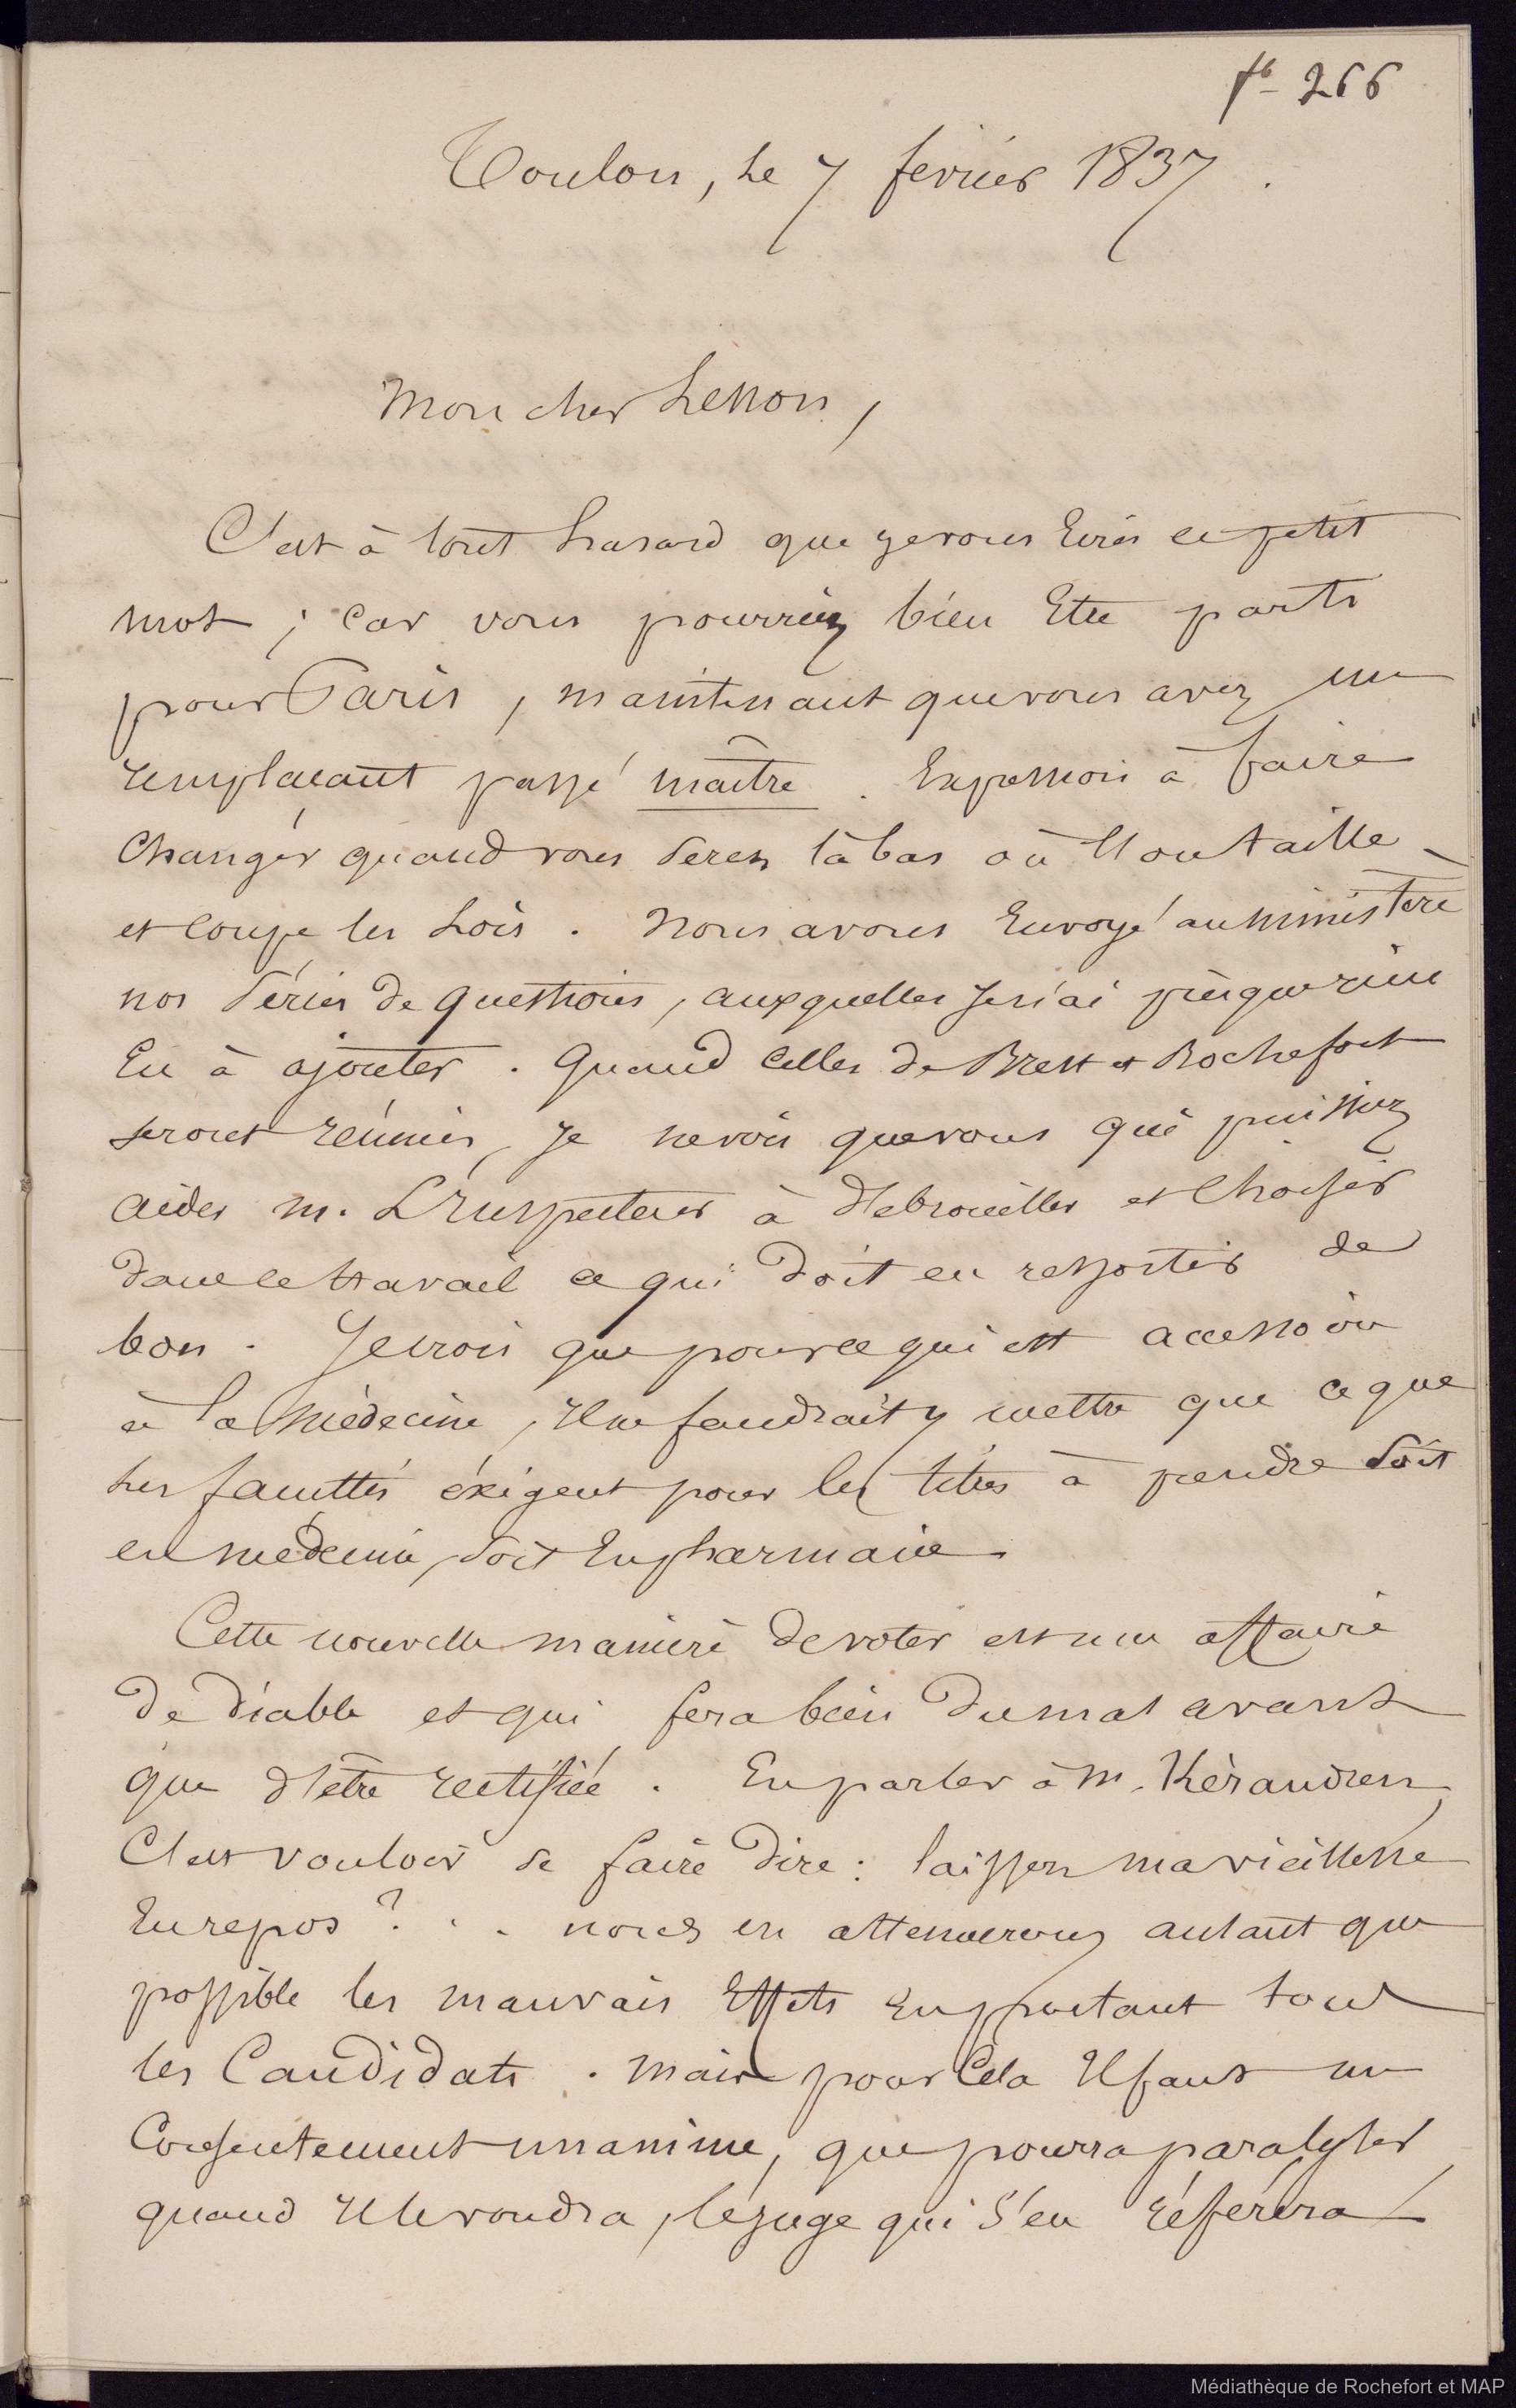 fo 266
Toulon, le 7 février 1837.
Mon cher Lesson,
C'est à tout hasard que je vous écris ce petit
mot ; car vous pourriez bien être parti
pour Paris, maintenant que vous avez un
remplaçant passé maître. Exposmoi à faire
changer quand vous serez là bas où l'on taille
et coupe les lois. Nous avons envoyé au ministère
nos séries de questions, auxquelles je n'ai presque rien
eu à ajouter. Quand celles de Brest et Rochefort
seront réunies, je ne vois que vous qui puissiez
aider m. L'Inspecteur à débrouiller et choisir
dans le travail ce qui doit en ressortir de
bon. Je crois que pour ce qui est accessoire
à la médecine, il ne faudrait y mettre que ce que
les facultés éxigent pour les titres à prendre soit
en médecine, soit en pharmacie.
Cette nouvelle manière de voter est une affaire
de diable et qui fera bien du mal avant
que d'être rectifiée. En parler à M. Kéraudren,
c'est vouloir se faire dire : laissez ma vieillesse
en repos ? . . nous en attenuerons autant que
possible les mauvais effets en portant tous
les Candidats. Mais pour cela il faut un
consentement unanime, que pourra paralyser
quand il le voudra, le juge qui s'en référera
Médiathèque de Rochefort et MAP